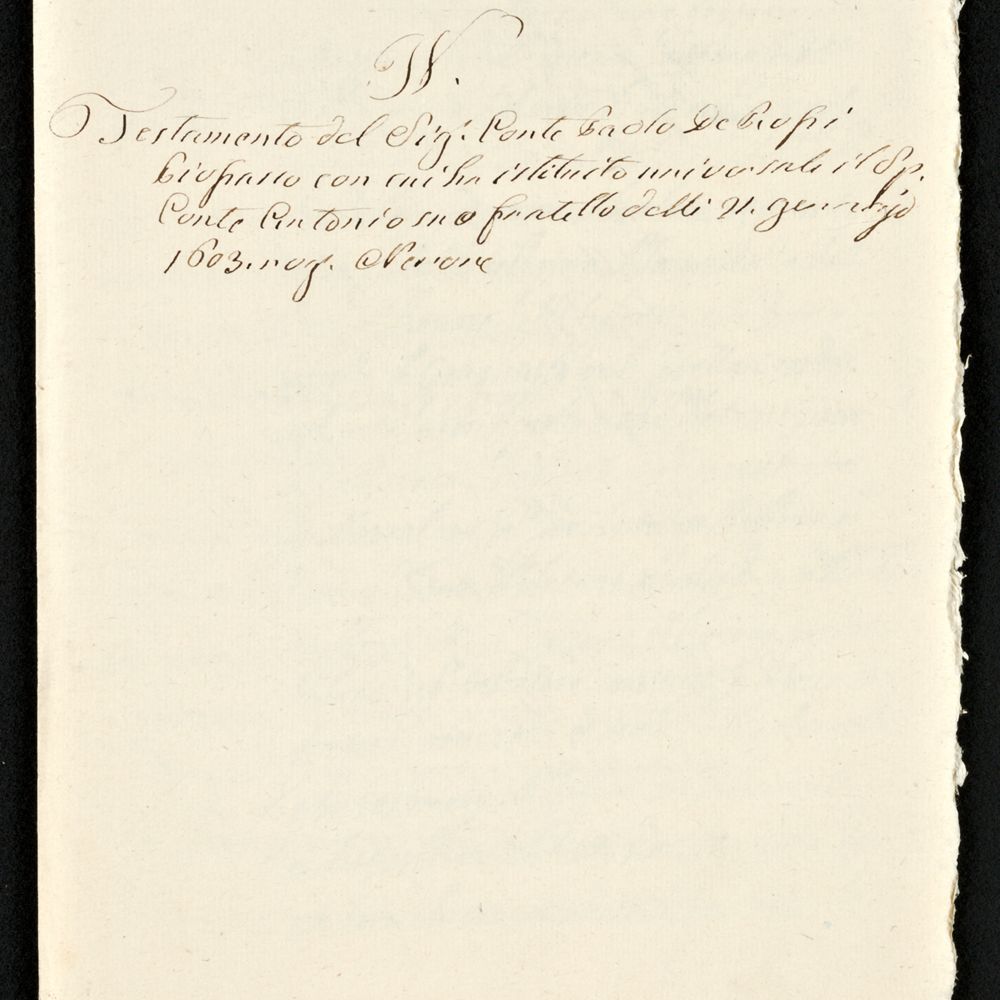 N.
Testamento del Sig.r Conte Paolo De Probi
con cui ha istituito universale il Sp.
Conte Antonio suo fratello delli 21. gennajo
1603. rog.